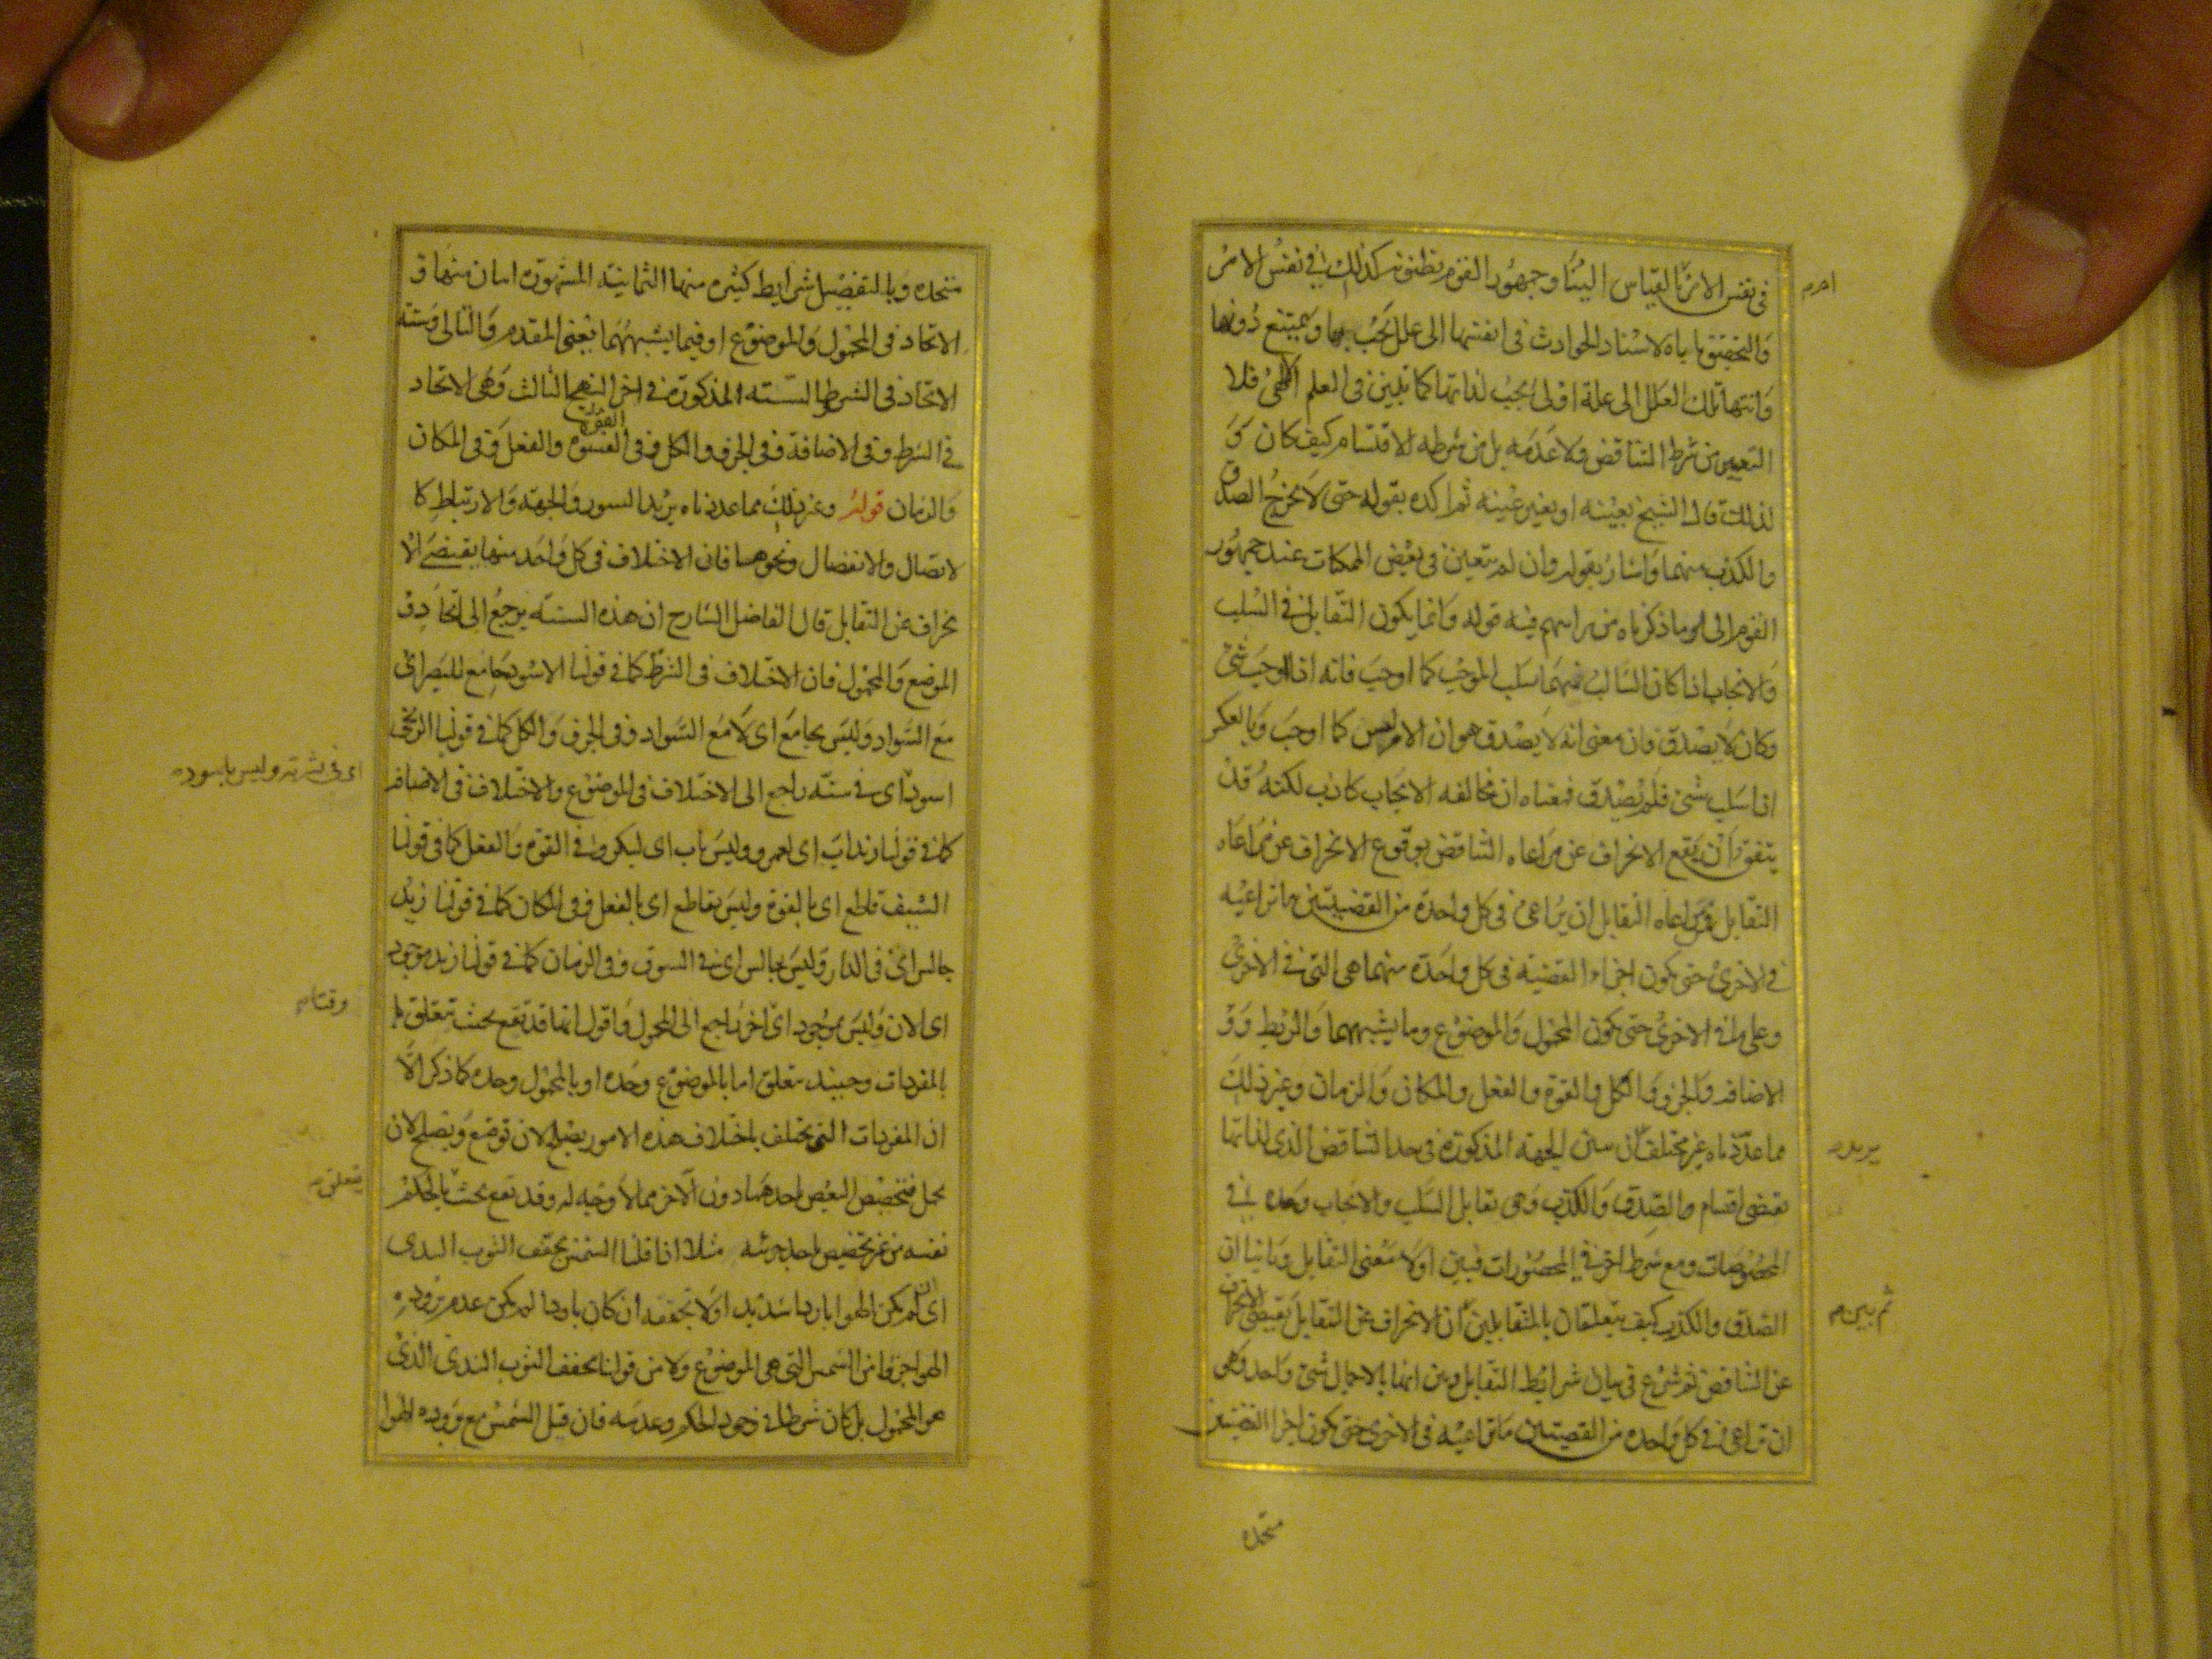 في نفس الامر بالقياس الينا وجمهور القوم يظنونه كذلك في نفس الامر
والتحقيق ياباه لاستناد الحوادث في انفسها الى علل تجب بها ويمتنع دونها
وانتهاء تلك العلل الى علة اولى يجب لذاتها كما تبين في العلم الالهي فلا
التعيين من شرط التناقض ولا عدمه بل من شرطه الاقتسام كيف كان و
لذلك قال الشيخ بعينه او بغير عينه ثم اكده بقوله حتى لا يخرج الصدق
والكذب منهما واشار بقوله وان لم يتعين في بعض الممكنات عند جمهور
القوم الى ما ذكرناه من راسهم فيه قوله وانما يكون التقابل في السلب
والايجاب اذا كان السالب منهما سلب الموجب كما اوجب فانه اذا اوجب شئ
وكان لا يصدق فان معنى انه لا يصدق هو ان الامر ليس كما اوجب وبالعكس
اذا سلب شئ فلم يصدق فمعناه ان مخالفه الايجاب كاذب لكنه قد
يتفق ان يقع الانحراف عن مراعاه التناقض بوقوع الانحراف عن مراعاه
التقابل ومراعاه التقابل ان يراعى في كل واحدة من القضيتين ما تراعيه
في الاخرى حتى يكون اجزاء القضية في كل واحدة منهما هي التي في الاخرى
وعلى ما في الاخرى حتى يكون المحمول والموضوع وما يشبههما والربط و
الاضافه والجزو والكل والقوة والفعل والمكان والزمان وغير ذلك
مما عددناه غير مختلف ان سنن الجهة المذكورة في حد التناقض الذي لذاتها
يقتضى اقتسام الصدق والكذب وهى تقابل السلب والايجاب وحده في
المخصوصات ومع شرط اخر في المحصورات فبين اولا معنى التقابل وثانيا ان
الصدق والكذب كيف يتعلقان بالمتقابلين ان الانحراف عن التقابل يقتضى الانحراف
عن التناقض ثم شرع في بيان شرايط التقابل وبين انها بالاجمال شئ واحد وهى
ان تراعى في كل واحده من القضيتين ما تراعيه في الاخرى حتى يكون اجزا القضيتين
يريد
ثم بين
متحده
متحده وبالتفصيل شرايط كثيره منها الثمانية المشهوره اثنان منها و
الاتحاد في المحمول والموضوع او فيما يشبههما يعنى المقدم والتالى وسته
الاتحاد في الشروط الستة المذكورة في اخر النهج الثالث وهى الاتحاد
في الشرط وفي الاضافة وفي الجزو والكل وفي القوة والفعل وفي المكان
والزمان قوله وغير ذلك مما عددناه يريد السور والجهة والارتباط كا
لاتصال والانفصال ونحوهما فان الاختلاف في كل واحد منها يقتضى الا
نحراف عن التقابل قال الفاضل الشارح ان هذه السته يرجع الى اتحاد
الموضع والمحمول فان الاختلاف في الشرط كما في قولنا الاسود جامع للبصر اى
مع السواد وليس بجامع اى لا مع السواد وفي الجزو والكل كما في قولنا الزنجى
اسود اى في سنه راجع الى الاختلاف في الموضوع والاختلاف في الاضافه
كما في قولنا زيد اب اى لعمرو وليس باب اى لبكر وفي القوة والفعل كما في قولنا
السيف قاطع اى بالقوة وليس بقاطع اى بالفعل وفي المكان كما في قولنا زيد
جالس اى في الدار وليس بجالس اى في السوق وفي الزمان كما في قولنا زيد موجود
اى الان وليس بموجود اى اخر راجع الى المحمول واقول انها قد تقع بحيث تتعلق
بالمفردات وحينئذ تتعلق اما بالموضوع وحده او بالمحمول وحده كما ذكر الا
ان المفردات التي تختلف باختلاف هذه الامور يصلح لان توضع ويصلح لان
يحمل فتخصيص البعض باحدهما دون الاخر مما لا وجه له وقد تقع بحيث بالحكم
نفسه من غير تخصيص باحد جزئيه مثلا اذا قلنا الشمس تجفف الثوب الندى
اى ان لم يكن الهوا باردا شديدا ولا تجففه ان كان باردا لم يكن عدم برودة
الهوا جزوا من الشمس التي هى الموضوع ولا من قولنا تجفف الثوب الندى الذى
هو المحمول بل كان شرطا في وجود الحكم وعدمه فان قيل الشمس مع برودة الهوا
اى في بشرته وليس باسود
وقتا
يتعلق